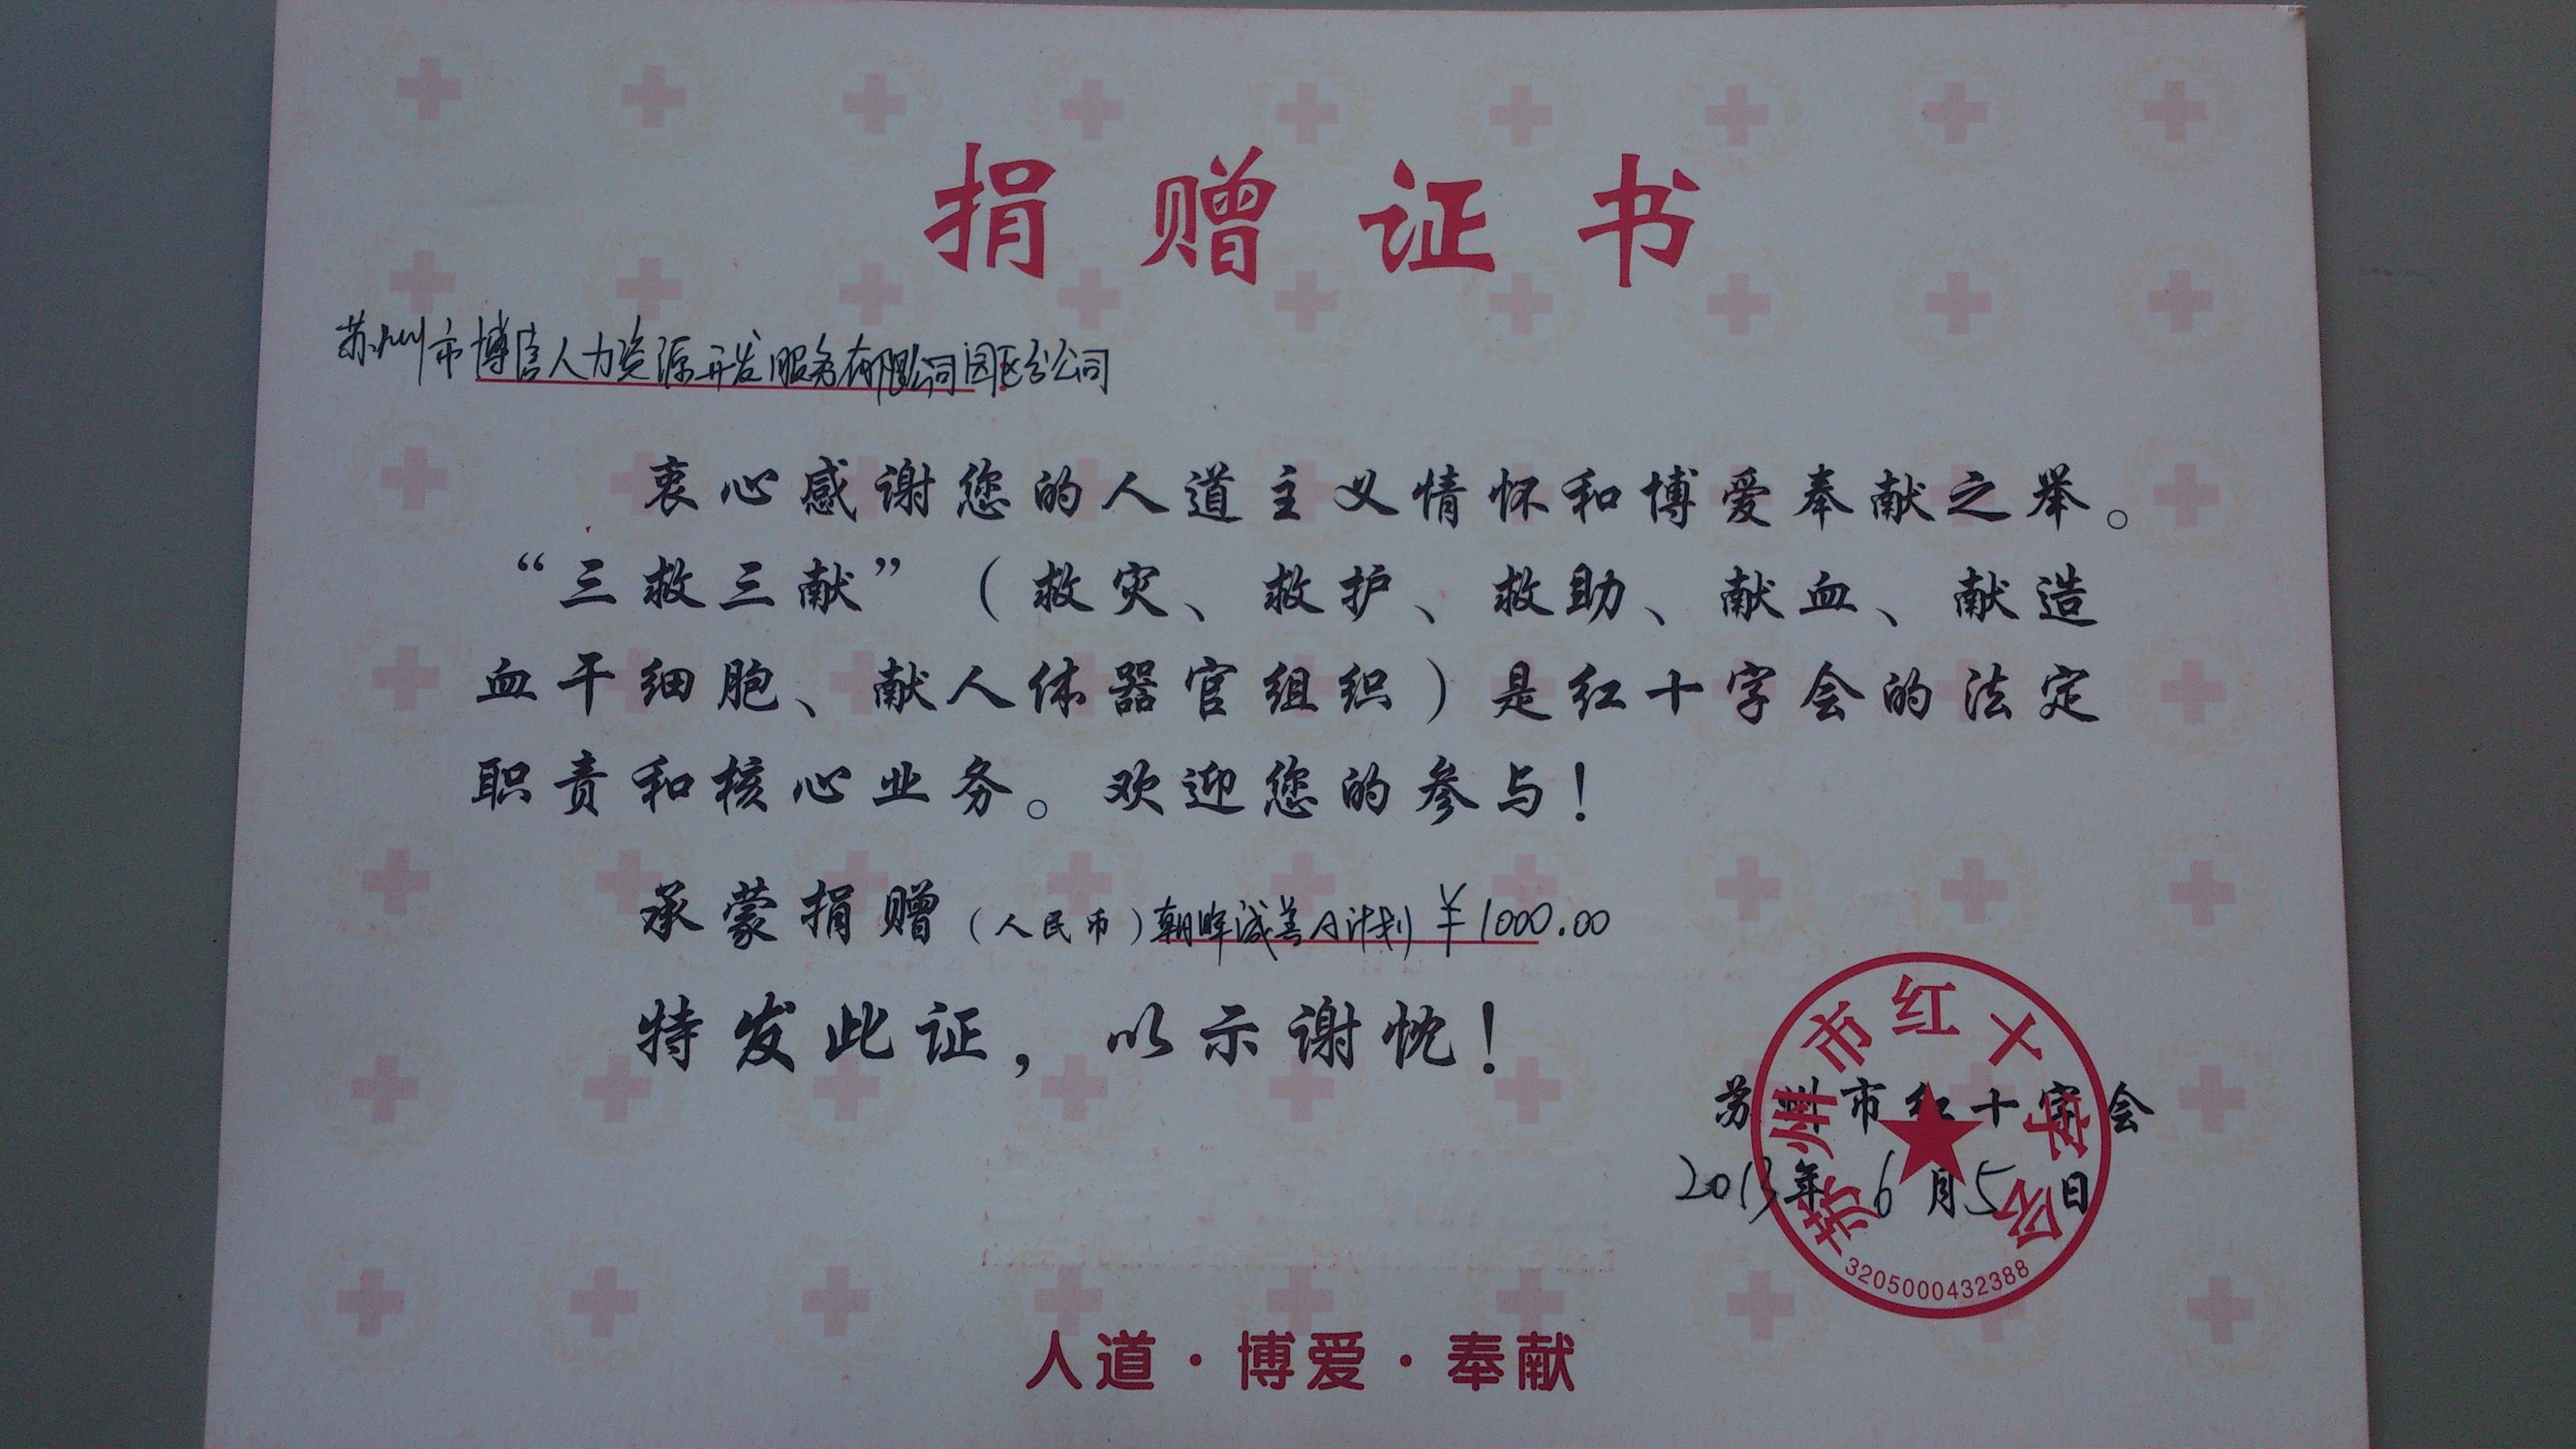 捐赠证书
苏州市博信人力资源开发服务有限公司园区分公司
衷心感谢您的人道主义情怀和博爱奉献之举。
“三救三献”(救灾、救护、救助、献血、献造
血干细胞、献人体器官组织)是红十字会的法定
职责和核心业务。欢迎您的参与!
承蒙捐赠(人民币)朝晖诚善A计划¥1000.00
特发此证,以示谢忱!
苏州市红十字会
苏州市红十字会
2013年6月5日
3205000432388
人道·博爱·奉献